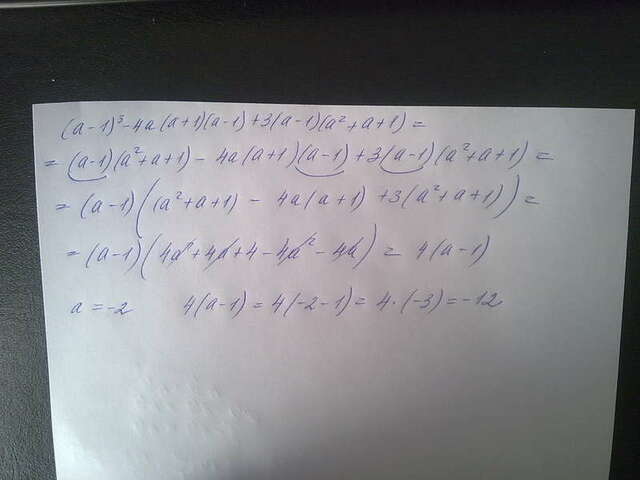 (a-1)³-4a(a+1)(a-1)+3(a-1)(a²+a+1)=
=(a-1)(a²+a+1)-4a(a+1)(a-1)+3(a-1)(a²+a+1)=
=(a-1)((a²+a+1)-4a(a+1)+3(a²+a+1))=
=(a-1)(4a²+4a+4-4a²-4a)=4(a-1)
a=-2 4(a-1)=4(-2-1)=4·(-3)=-12